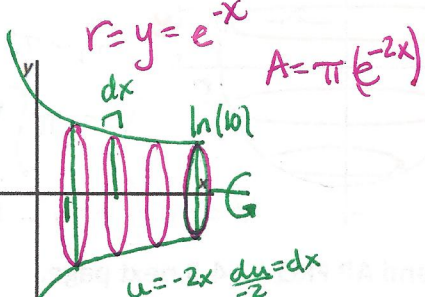 r = y = e^-x
A = π(e^-2x)
y
dx
ln(10)
x
1
u = -2x du/-2 = dx